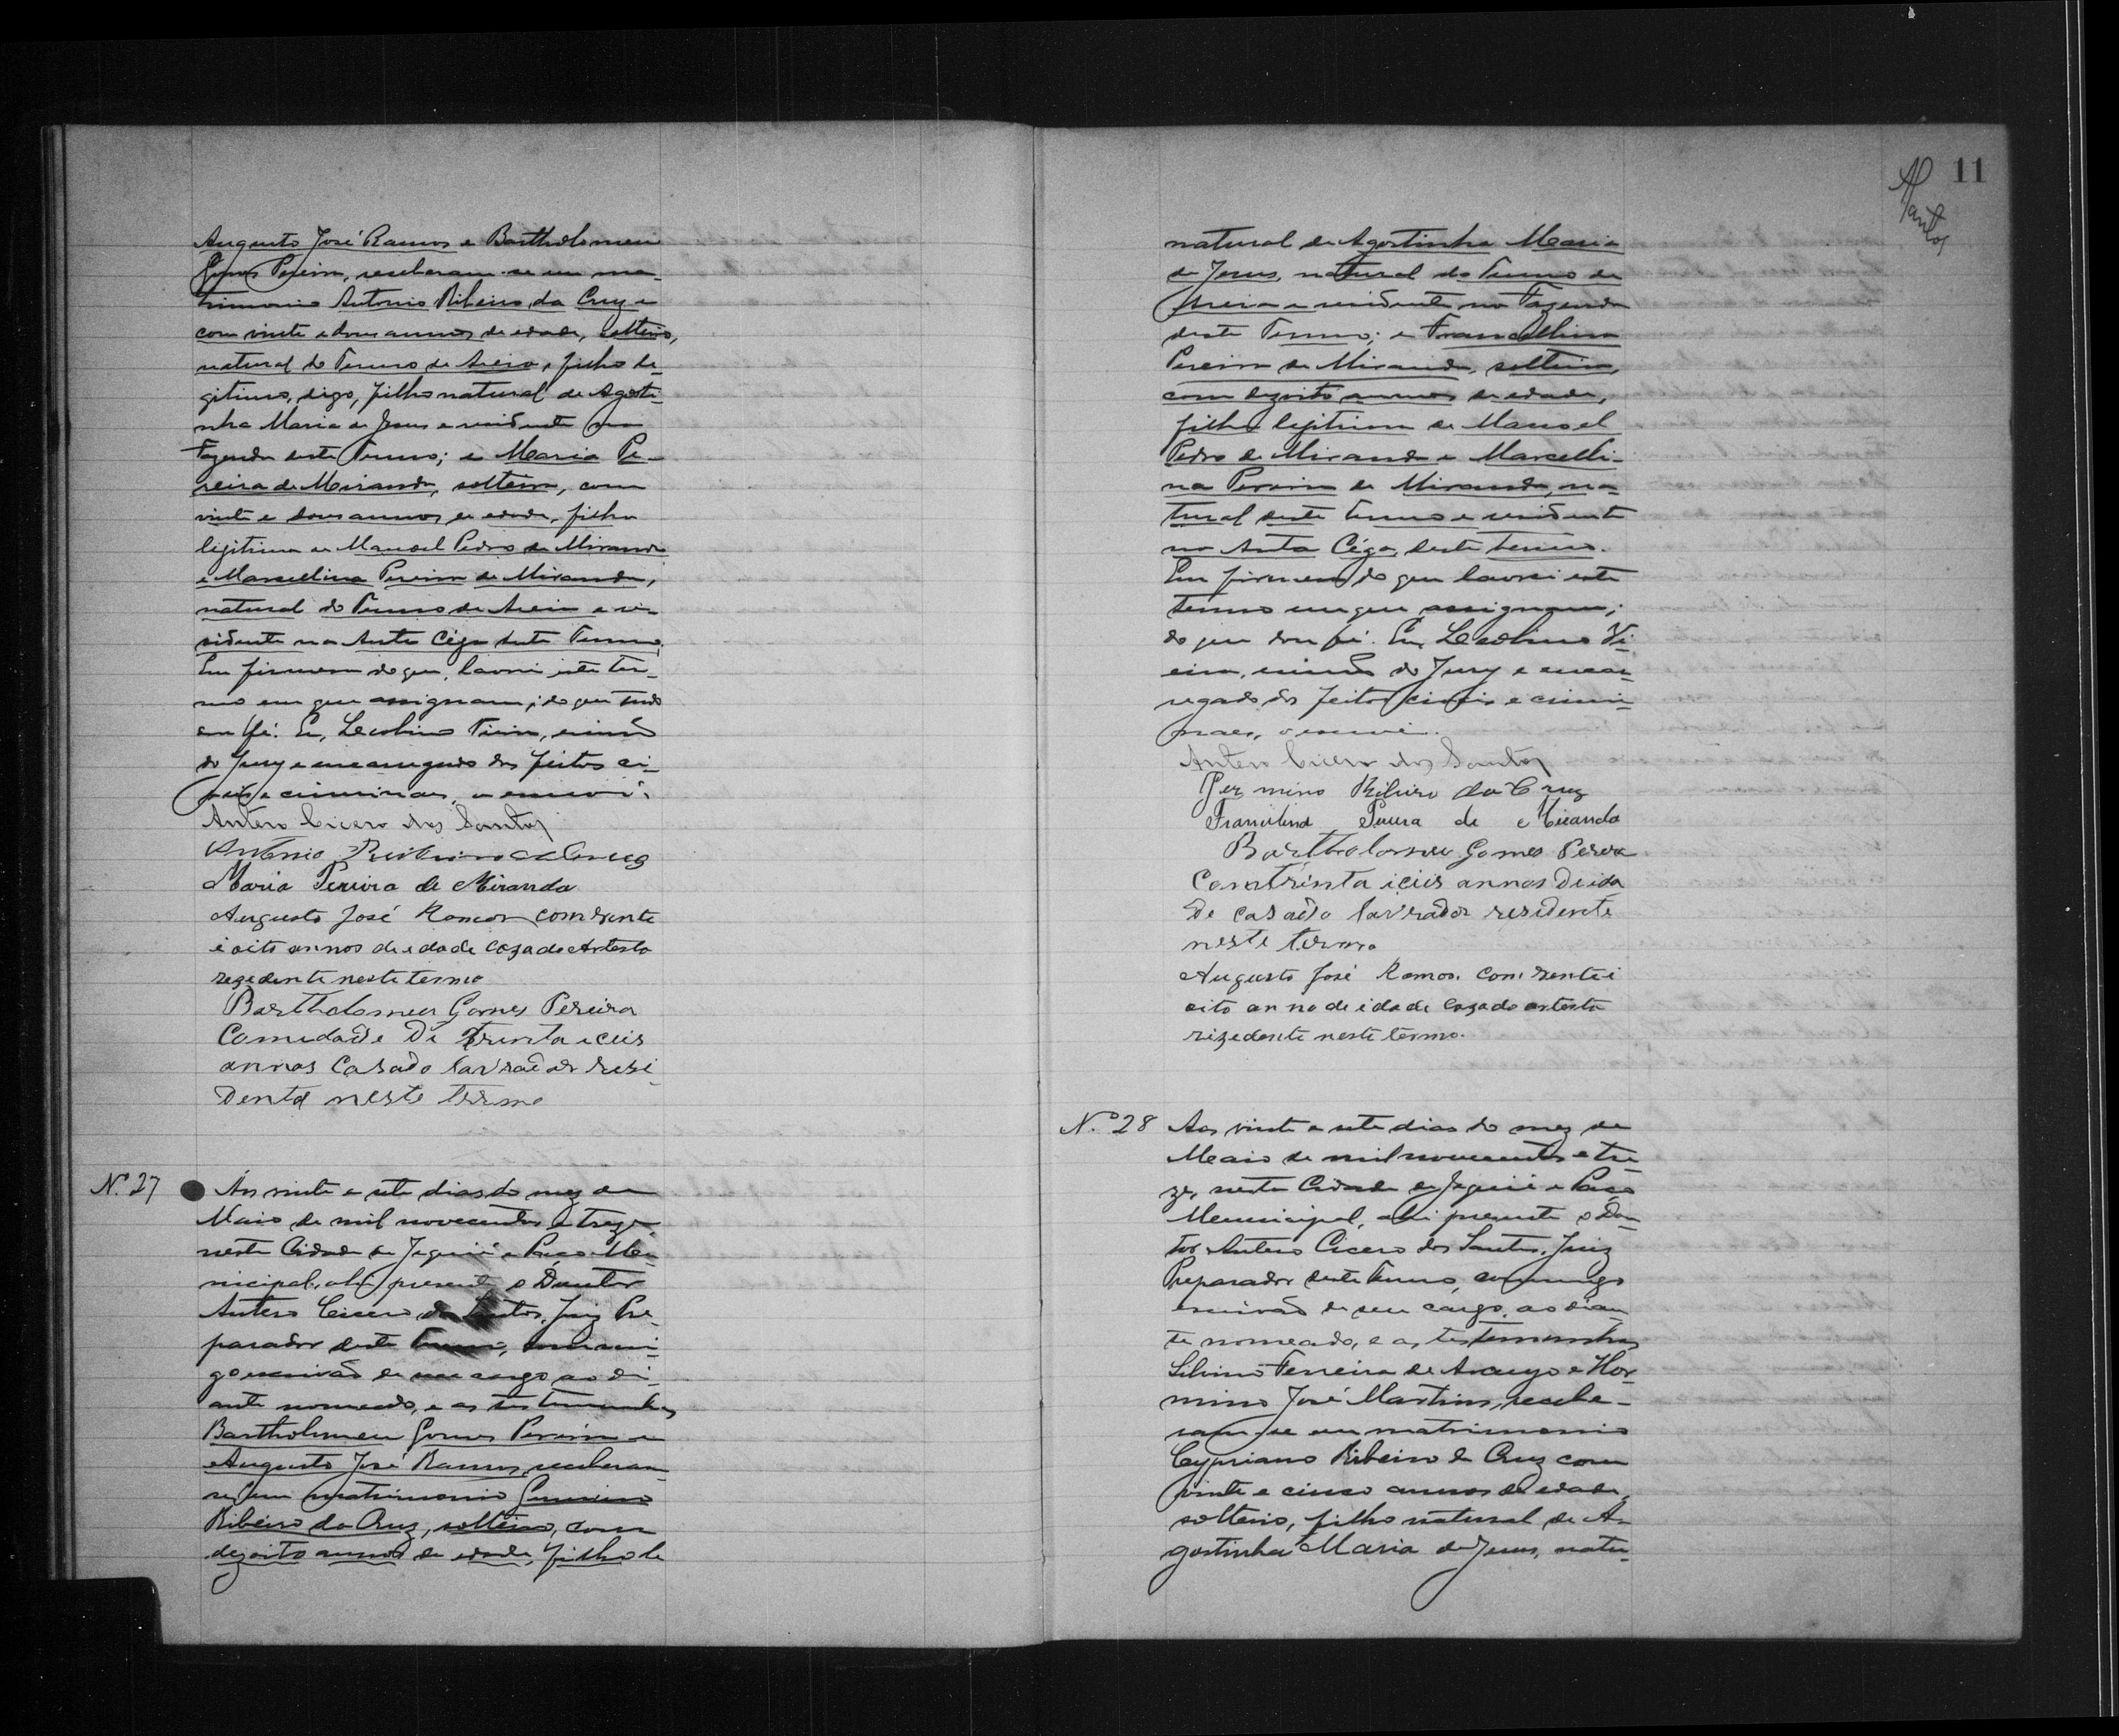 Augusto José Ramos e Bartholomeu
Gomes Pereira, receberam-se em ma-
trimonio Antonio Ribeiro da Cruz e
com vinte e dous annos de edade, solteiro,
natural do Termo de Areia, filho le-
gitimo, digo, filho natural de Agosti-
nha Maria de Jesus e residente na
Fazenda deste Termo; e Maria Pe-
reira de Miranda, solteira, com
vinte e dous annos de edade, filha
legitima de Manoel Pedro de Miranda
e Marcellina Pereira de Miranda,
natural do Termo de Areia e re-
sidente na Anta Céga deste Termo,
Em firmesa do que, lavrei este ter-
mo em que assignam; do que tudo
dou fé. Eu, Leolino Vieira, escrivão
do Jury e encarregado dos feitos ci-
veis e criminaes, o escrevi.
Antero Cicero dos Santos
Antonio Ribeiro da Cruz
Maria Pereira de Miranda
Augusto José Ramos com trinta
e oito annos de edade cazado Artesta
rezedente neste termo
Bartholomeu Gomes Pereira
Com edade De trinta e ceis
annos Casado lavrador resi-
dente neste termo
Nº 27 Aos vinte e sete dias do mez de
Maio de mil novecentos e treze,
nesta Cidade de Jequié e Paço Mu-
nicipal, ahi presente o Doutor
Antero Cicero dos Santos, Juiz Pre-
parador deste Termo, commi-
go escrivão de seu cargo ao di-
ante nomeado, e as testemunhas
Bartholomeu Gomes Pereira e
Augusto José Ramos, receberam-
se em matrimonio Germino
Ribeiro da Cruz, solteiro, com
dezoito annos de edade, filho le
11
Santos
natural de Agostinha Maria
de Jesus, natural do Termo de
Areia e residente na Fazenda
deste Termo; e Francellina
Pereira de Miranda, solteira,
com dezoito annos de edade,
filha legitima de Manoel
Pedro de Miranda e Marcelli-
na Pereira de Miranda, na-
tural deste termo e residente
na Anta Céga, deste termo.
Em firmesa do que lavrei este
termo em que assignam;
do que dou fé. Eu, Leolino Vi-
eira, escrivão do Jury e encar-
regado dos feitos civeis e crimi-
naes, o escrevi.
Antero Cicero dos Santos
Germino Ribeiro da Cruz
Francilina Pereira de Miranda
Bartholomeu Gomes Pereira
Com trinta i ceis annos De ida
De casado lavrador residente
neste termo
Augusto José Ramos. com trinta i
oito anno de idade cazado artesta
rizedente neste termo.
Nº 28 Aos vinte e sete dias do mez de
Maio de mil novecentos e tre-
ze, nesta Cidade de Jequié e Paço
Municipal, ahi presente o Dou-
tor Antero Cicero dos Santos, Juiz
Preparador deste Termo, commigo
escrivão de seu cargo, ao dian-
te nomeado, e as testemunhas
Silvino Ferreira de Araujo e Hor-
mino José Martins, recebe-
ram-se em matrimonio
Cypriano Ribeiro da Cruz com
vinte e cinco annos de edade,
solteiro, filho natural de A-
gostinha Maria de Jesus, natu-